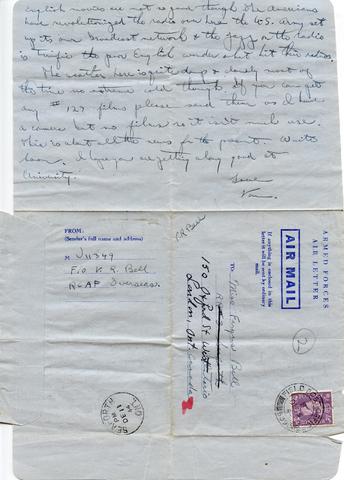 English movies are not so good though the Americans
have revolutionized the radio over here the U.S. Army set
up its own broadcast network & the jazz on the radio
is terrific the poor English wonder what hit their radios.
The weather here is quite damp & cloudy most of
the time no extreme cold though. If you can get
any # 127 films please send them as I have
a camera but no films so it isn't much use.
This is about all the news for the present. Write
soon. I hope you are getting along good at
University.
Love
FROM:
(Sender's full name and address)
M J 
F.O. V. R. Bell
RCAF Overseas.
RR Bell
TO:
Miss Bell
150 Oxford St West
London, Ont
Canada
AIR MAIL
If anything is enclosed in this
letter it will be sent by ordinary
mail.
ARMED FORCES
AIR LETTER
2
SEAFORTH
PM
DE 11
44
ONT.
FIELD POST OFFICE